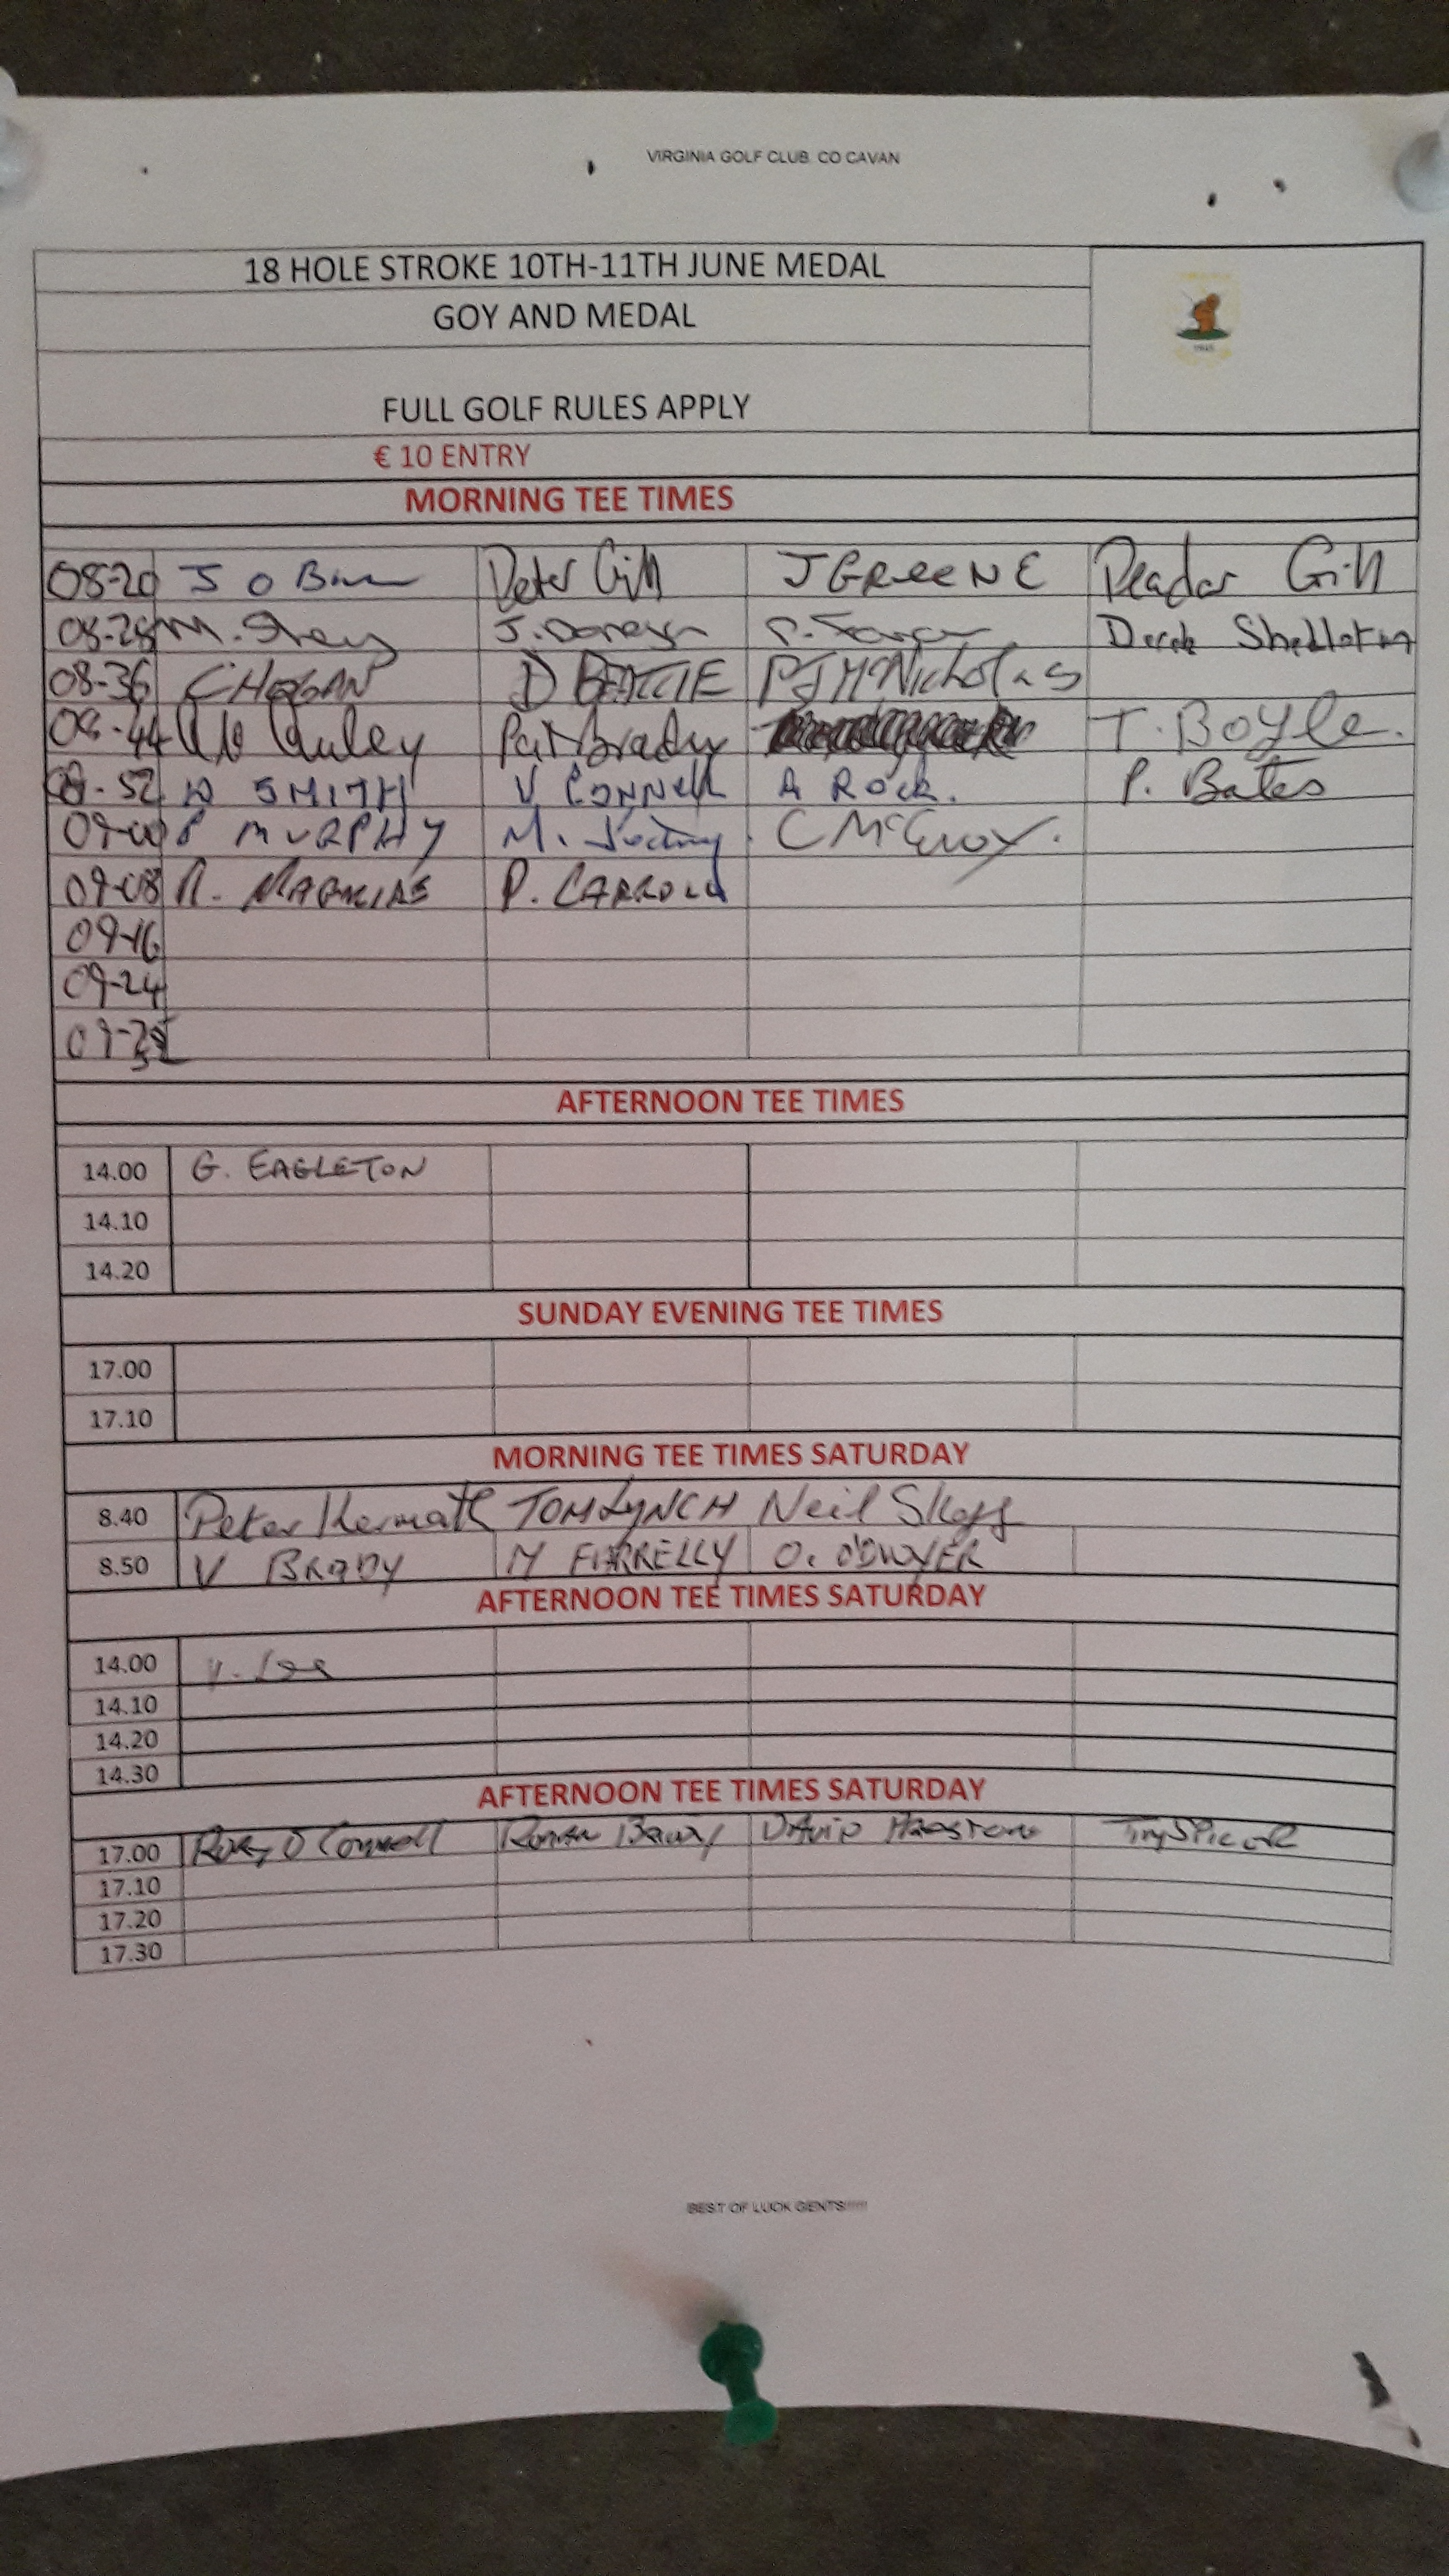 VIRGINIA GOLF CLUB. CO CAVAN
18 HOLE STROKE 10TH-11TH JUNE MEDAL
GOY AND MEDAL
FULL GOLF RULES APPLY
€ 10 ENTRY
MORNING TEE TIMES
08-20 J O Peter Gill J GREENE Peadar Gill
08-28 M. J. S. Derek
08-36 HOGAN D BEATTIE PJ McNicholas
08-44 Pat Brady T. Boyle.
08-52 D SMITH V CONNELL A ROCK. P. Bates
09-00 P MURPHY M. C McEvoy.
09-08 P. CARROLL
09-16
09-24
09-
AFTERNOON TEE TIMES
14.00 G. EAGLETON
14.10
14.20
SUNDAY EVENING TEE TIMES
17.00
17.10
MORNING TEE TIMES SATURDAY
8.40 Peter TOM LYNCH Neil
8.50 V BRADY M FARRELLY O. O'DWYER
AFTERNOON TEE TIMES SATURDAY
14.00 Lee
14.10
14.20
14.30
AFTERNOON TEE TIMES SATURDAY
17.00 Rory O'Connell Ronan DAVID
17.10
17.20
17.30
BEST OF LUCK GENTS!!!!!